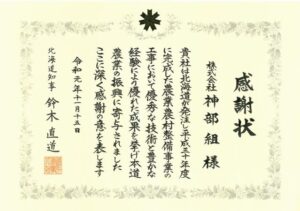 感謝状
株式会社 神部組 様
貴社は北海道が発注し平成三十年度
に完成した農業農村整備事業の
工事において優秀な技術と豊かな
経験により優れた成果を挙げ本道
農業の振興に寄与されました
ここに深く感謝の意を表します
令和元年十一月十五日
北海道知事 鈴木直道